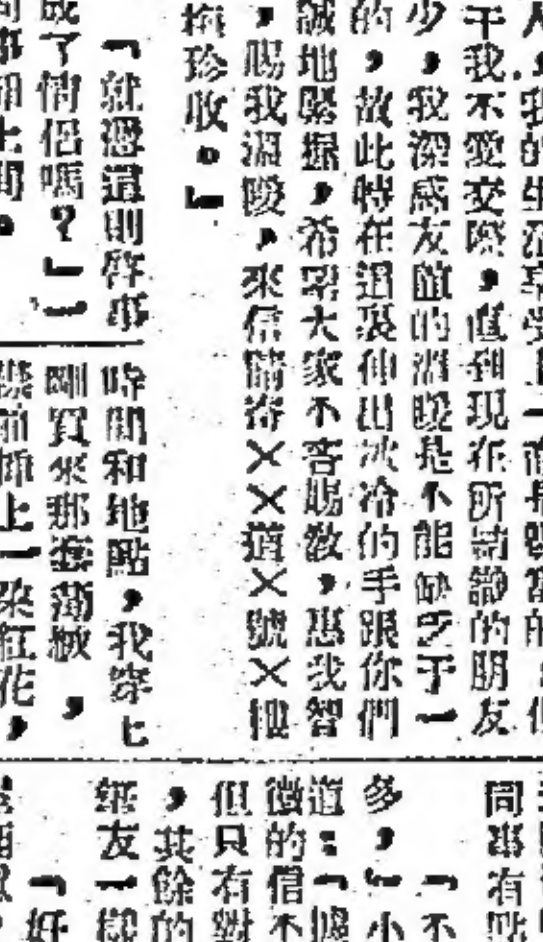 人，我的生活享受上一
于我不愛交際，直到現在所結識的朋友
少，我深感友誼的溫暖是不能缺乏于一
的，故此特在這裏伸出冰冷的手跟你們
誠地緊握，希望大家不吝賜教，惠我智
，賜我溫暖，來信請寄××道×號×樓
珍收。」
「就憑這則啓事
成了情侶嗎？」一
時間和地點，我穿上
剛買來那套薄絨，
襟前插上一朵紅花，
同事有點
「不
多，」小
道：「據
徵的信不
但只有對
，其餘的
紙友一樣
「好